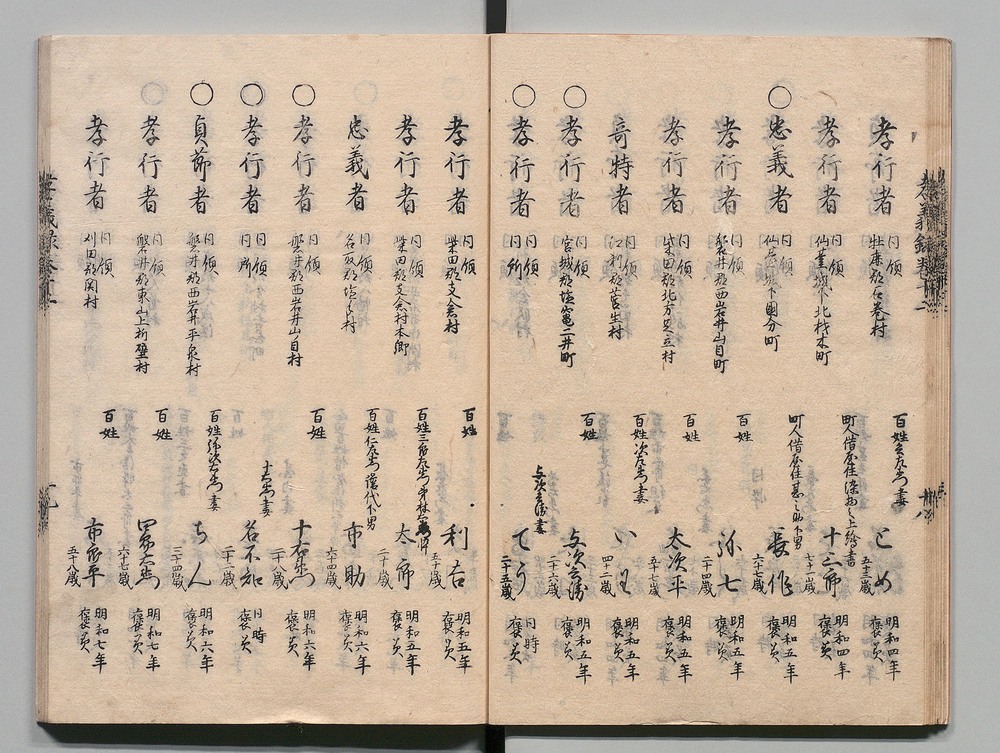 孝行者 同領 牡鹿郡石巻村 百姓 妻 とめ 五十三歳 明和四年 褒美
孝行者 同領 仙臺城下北材木町 町人借屋住 上絵書 十三郎 明和四年 褒美
○忠義者 同領 仙臺城下国分町 町人借屋住甚之助下男 長作 六十七歳 明和五年 褒美
孝行者 同領 磐井郡西岩井山目町 百姓 弥七 二十四歳 明和五年 褒美
孝行者 同領 柴田郡北方足立村 百姓 太次平 五十七歳 明和五年 褒美
奇特者 同領 江刺郡菅生村 百姓 妻 四十二歳 明和五年 褒美
○孝行者 同領 宮城郡塩竈二井町 百姓 与次兵衛 二十六歳 明和五年 褒美
○孝行者 同領 同所 与次兵衛妻 てう 二十五歳 同時 褒美
孝行者 同領 柴田郡支倉村 百姓 利吉 五十歳 明和五年 褒美
孝行者 同領 柴田郡支倉村本郷 百姓 太市 二十歳 明和五年 褒美
忠義者 同領 名取郡 村 百姓仁左衛門譜代下男 市助 六十四歳 明和六年 褒美
○孝行者 同領 磐井郡西岩井山目村 百姓 十右衛門 二十八歳 明和六年 褒美
○孝行者 同領 同所 十右衛門妻 名不知 二十一歳 同時 褒美
○貞節者 同領 磐井郡西岩井平泉村 百姓 妻 ちん 三十四歳 明和六年 褒美
○孝行者 同領 磐井郡東山上折壁村 百姓 六十七歳 明和七年 褒美
孝行者 同領 刈田郡関村 百姓 市郎平 五十八歳 明和七年 褒美
孝義録巻十二